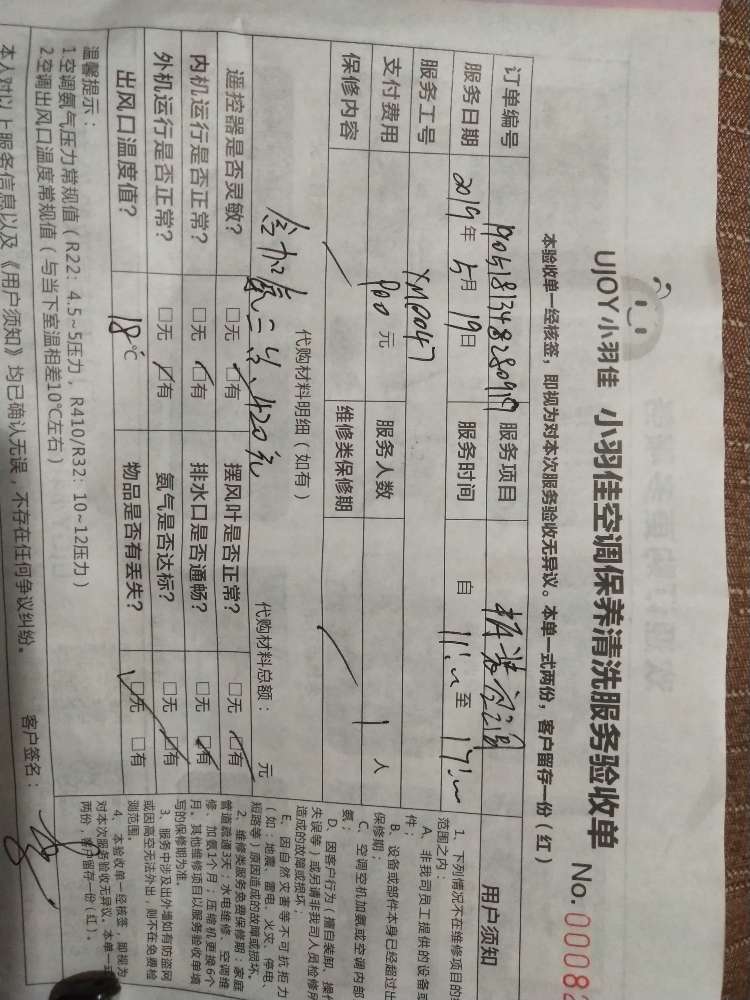 UJOY小羽佳 小羽佳空调保养清洗服务验收单
No.0008
本验收单一经核签，即视为对本次服务验收无异议。本单一式两份，客户留存一份（红）
订单编号 服务项目
服务日期 2019年5月19日 服务时间 自 至
服务工号 XM0047
支付费用 元 服务人数 1 人
保修内容 维修类保修期
代购材料明细（如有） 代购材料总额： 元
420元
遥控器是否灵敏？ □无 □有 摆风叶是否正常？ □无 □有
内机运行是否正常？ □无 □有 排水口是否通畅？ □无 □有
外机运行是否正常？ □无 □有 氨气是否达标？ □无 □有
出风口温度值？ 18℃ 物品是否有丢失？ □无 □有
温馨提示：
1空调氨气压力常规值（R22：4.5~5压力，R410/R32：10~12压力）
2空调出风口温度常规值（与当下室温相差10℃左右）
本人对以上服务信息以及《用户须知》均已确认无误，不存在任何争议纠纷。
客户签名：
用户须知
1、下列情况不在维修项目的
范围之内：
A、非我司员工提供的设备或
件；
B、设备或部件本身已经超过出
保修期；
C、空调空机加氨或空调内部
氨；
D、因客户行为（擅自装卸、操
失误等）或另请非我司人员检修所
造成的故障或损坏；
E、因自然灾害等不可抗拒力
（如：地震、雷电、火灾、停电、
短路等）原因造成的故障或损坏。
2、维修类服务免费保修期：家庭
管道疏通3天；水电维修、空调维
修、加氨1个月；压缩机更换6个
月。其他维修项目以服务验收单填
写的保修期为准。
3、服务中涉及出外墙如有防盗网
或因高空无法外出，则不在免费检
测范围。
4、本验收单一经核签，即视为
对本次服务验收无异议。本单一式
两份，客户留存一份（红）。